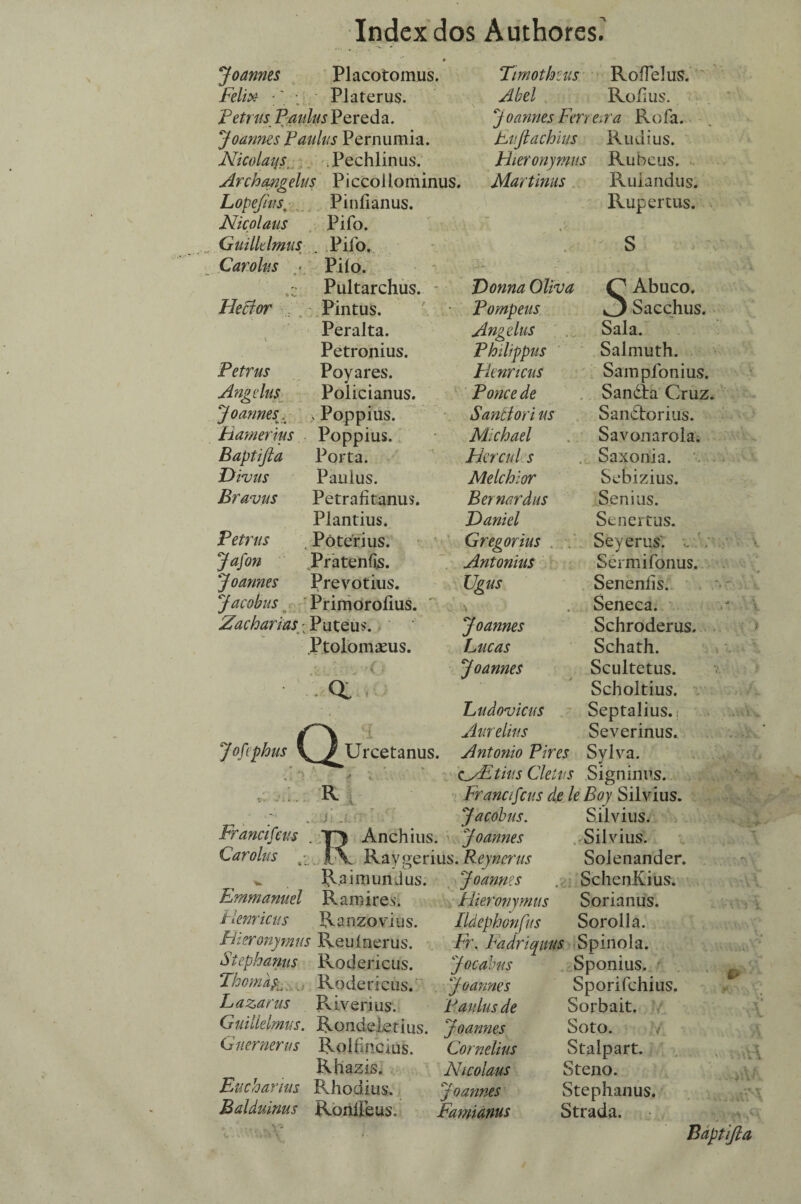 Index dos Authores.
Joannes Placotomus.
Felix Platerus.
Petrus Paulus Pereda.
Joannes Paulus Pernumia.
Nicolaus Pechlinus.
Archangelus Piccollominus.
Lopesius Pinsianus.
Nicolaus Piso.
Guillelmus Piso.
Carolus Piso.
Pultarchus.
Hector Pintus.
Peralta.
Petronius.
Petrus Poyares.
Angelus Policianus.
Joannes Poppius.
Hamerius Poppius.
Baptista Porta.
Divus Paulus.
Bravus Petrafitanus.
Plantius.
Petrus Poterius.
Jason Pratensis.
Joannes Prevotius.
Jacobus Primorosius.
Zacharias Puteus.
Ptolomæus.
Q.
Josephus QUrcetanus.
R
Franciscus RAnchius.
Carolus Raygerius.
Raimundus.
Emmanuel Ramires.
Henricus Ranzovius.
Hieronymus Reusnerus.
Stephanus Rodericus.
Thomas Rodericus.
Lazarus Riverius.
Guillelmus. Rondeletius.
Guernerus Rolfincius.
Rhazis.
Eucharius Rhodius.
Balduinus Ronsseus.
Timotheus Rosselus.
Abel Rosius.
Joannes Ferreira Rosa.
Eustachius Rudius.
Hieronymus Rubeus.
Martinus Rulandus.
Rupertus.
S
Donna Oliva SAbuco.
Pompeus Sacchus.
Angelus Sala.
Philippus Salmuth.
Henricus Sampsonius.
Ponce de Sancta Cruz.
Sanctorius Sanctorius.
Michael Savonarola.
Hercul s Saxonia.
Melchior Sebizius.
Bernardus Senius.
Daniel Senertus.
Gregorius Seyerus.
Antonius Sermisonus.
Ugus Senensis.
Seneca.
Joannes Schroderus.
Lucas Schath.
Joannes Scultetus.
Scholtius.
Ludovicus Septalius.
Aurelius Severinus.
Antonio Pires Sylva.
Ætius Cletus Signinus.
Franciscus de le Boy Silvius.
Jacobus. Silvius.
Joannes Silvius.
Reynerus Solenander.
Joannes SchenKius.
Hieronymus Sorianus.
Ildephonsus Sorolla.
Fr. Fadriquus Spinola.
Jocabus Sponius.
Joannes Sporischius.
Paulus de Sorbait.
Joannes Soto.
Cornelius Stalpart.
Nicolaus Steno.
Joannes Stephanus.
Famianus Strada.
Baptista